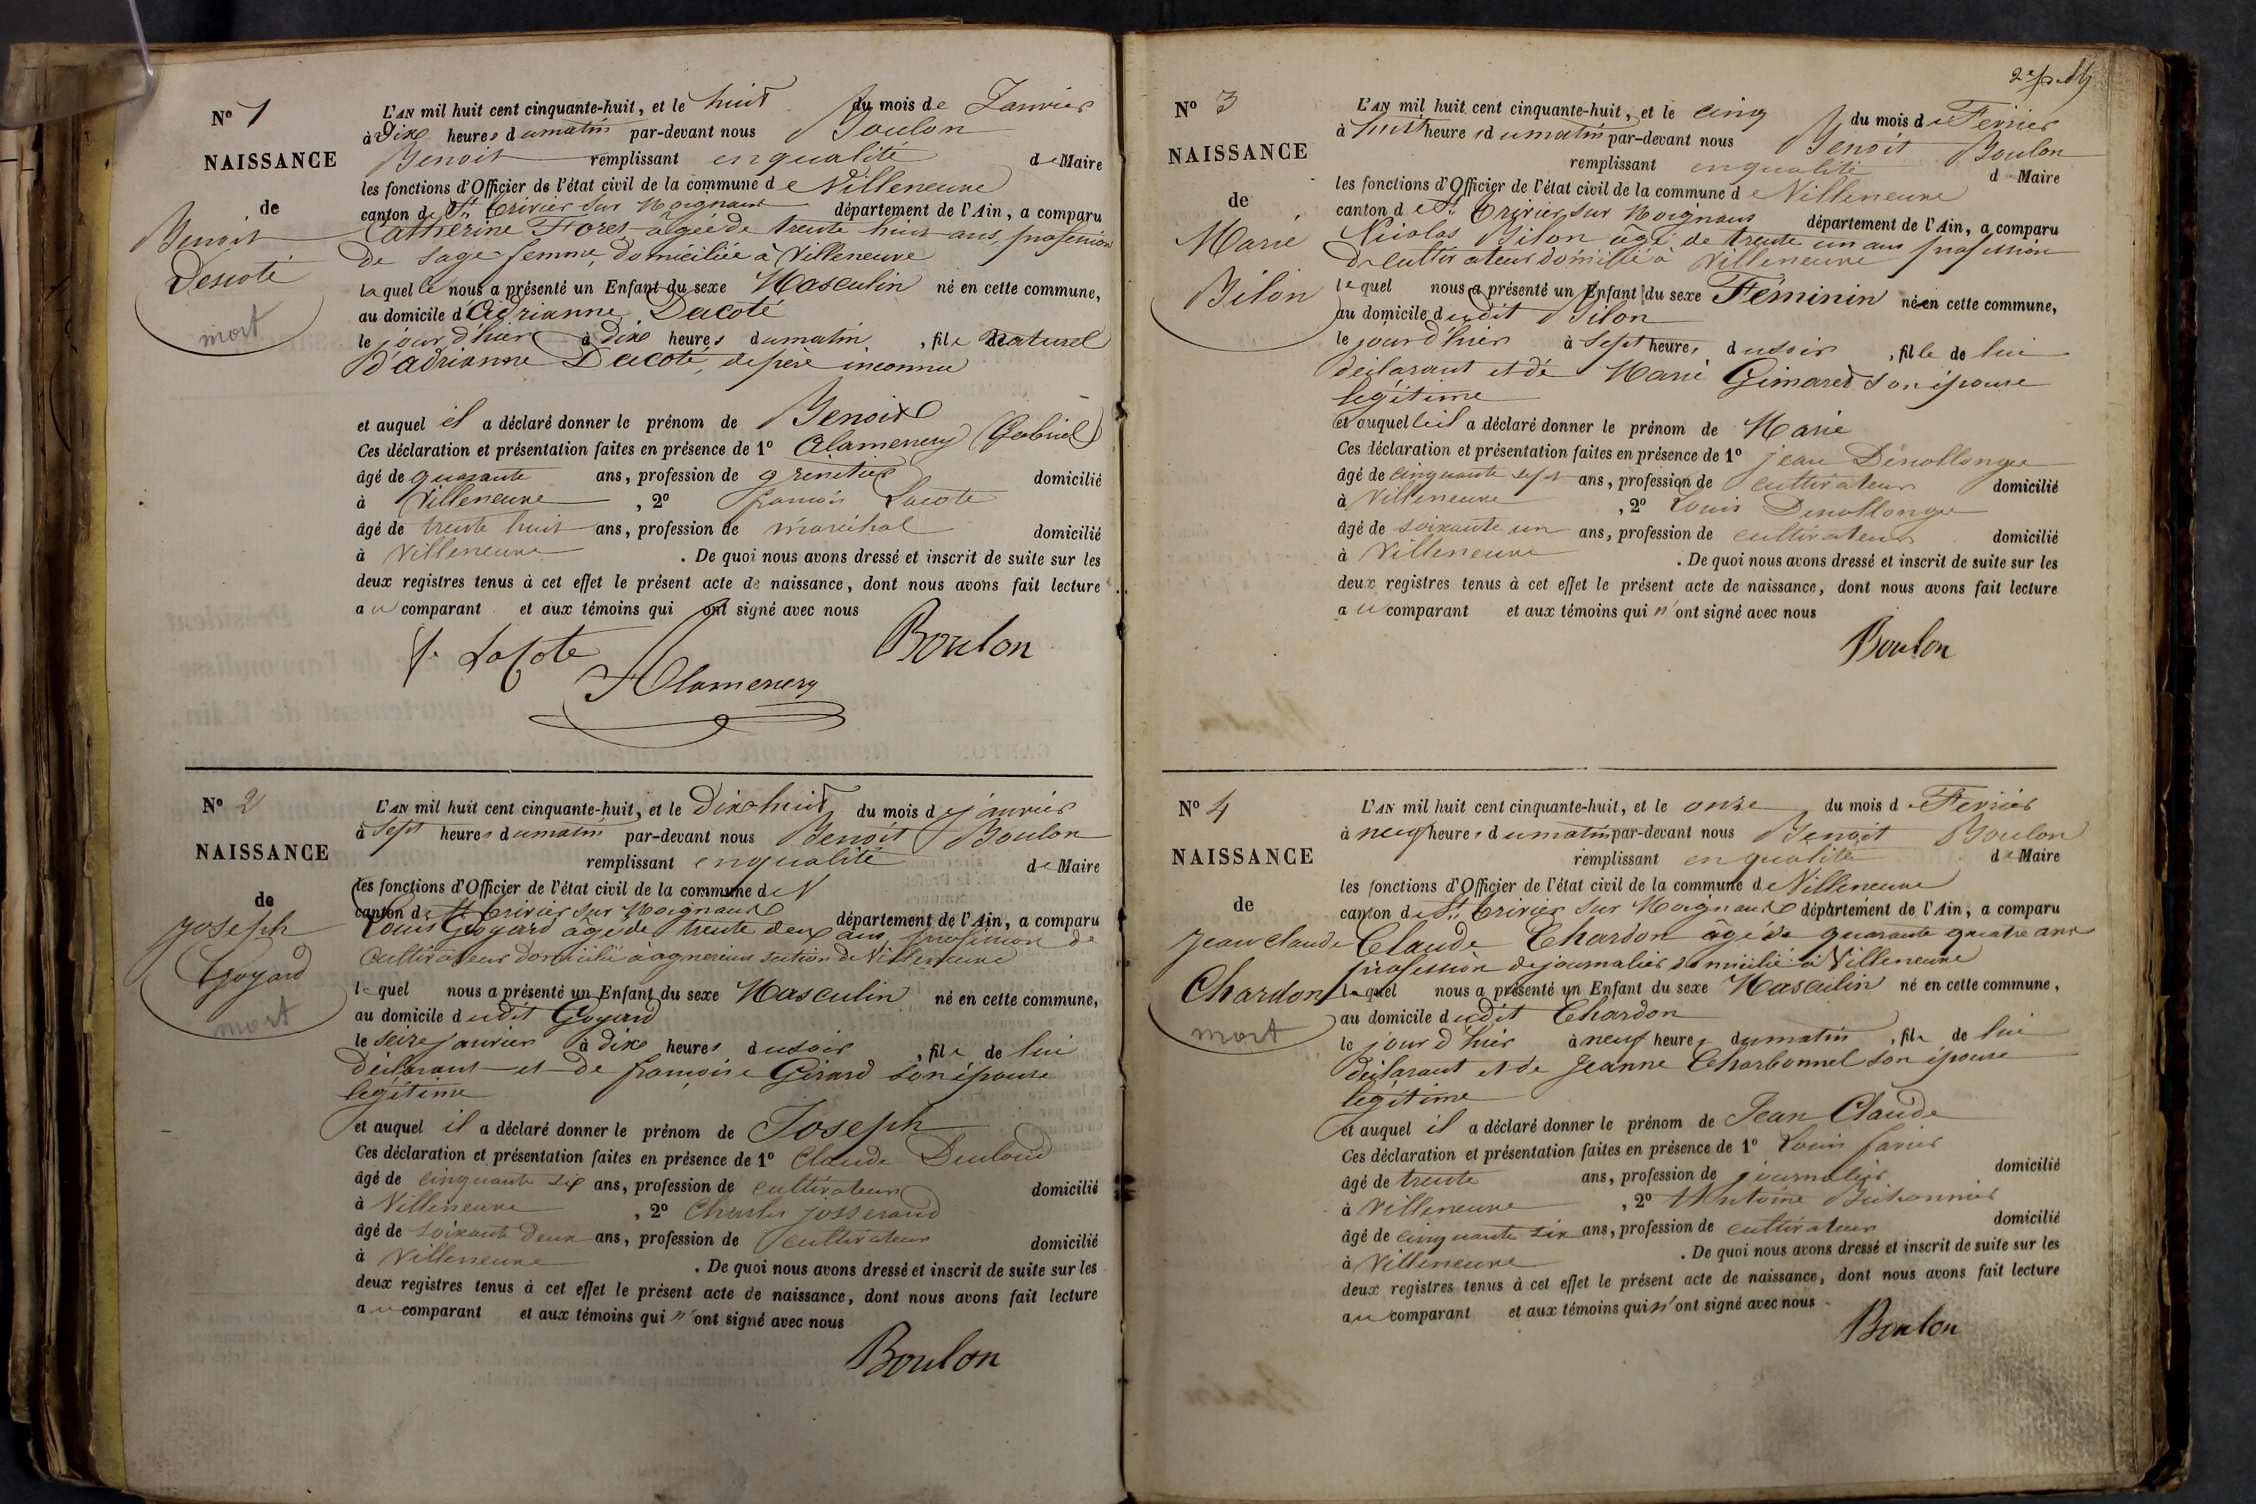 No 1
NAISSANCE
de
Benoit
Descoté
mort
L'AN mil huit cent cinquante-huit, et le huit du mois de Janvier
à Dix heures du matin par-devant nous Boulon
Benoit remplissant en qualité de Maire
les fonctions d'Officier de l'état civil de la commune de Villeneuve
canton de St Trivier sur Moignans département de l'Ain, a comparu
Catherine Foret agée de trente huit ans, profession
de sage femme, domiciliée à Villeneuve
laquelle nous a présenté un Enfant du sexe Masculin né en cette commune,
au domicile d'Adrianne Dacoté
le jour d'hier à dix heures du matin, fils naturel
d'adrianne Dacoté, de père inconnu
et auquel il a déclaré donner le prénom de Benoit
Ces déclaration et présentation faites en présence de 1º Alamercery (Gabriel)
âgé de quarante ans, profession de grenetier domicilié
à Villeneuve, 2º françois Lacote
âgé de trente huit ans, profession de maréchal domicilié
à Villeneuve. De quoi nous avons dressé et inscrit de suite sur les
deux registres tenus à cet effet le présent acte de naissance, dont nous avons fait lecture
au comparant et aux témoins qui ont signé avec nous
f. LaCote
Alamercery
Boulon
No 2
NAISSANCE
de
Joseph
Goyard
mort
L'AN mil huit cent cinquante-huit, et le Dix huit du mois de janvier
à Sept heures du matin par-devant nous Benoit Boulon
remplissant en qualité de Maire
les fonctions d'Officier de l'état civil de la commune de V
canton de St Trivier sur Moignans département de l'Ain, a comparu
Louis Goyard agé de trente deux ans, profession de
Cultivateur domicilié à agnereins section de Villeneuve
lequel nous a présenté un Enfant du sexe Masculin né en cette commune,
au domicile dudit Goyard
le seize janvier à dix heures du soir, fils de lui
déclarant et de françoise Girard son épouse
legitime
et auquel il a déclaré donner le prénom de Joseph
Ces déclaration et présentation faites en présence de 1º Claude
âgé de cinquante six ans, profession de cultivateur domicilié
à Villeneuve, 2º Charles josserand
âgé de soixante deux ans, profession de cultivateur domicilié
à Villeneuve. De quoi nous avons dressé et inscrit de suite sur les
deux registres tenus à cet effet le présent acte de naissance, dont nous avons fait lecture
au comparant et aux témoins qui n'ont signé avec nous
Boulon
No 3
NAISSANCE
de
Marie
Bilon
L'AN mil huit cent cinquante-huit, et le cinq du mois de Fevrier
à huit heures du matin par-devant nous Benoit Boulon
remplissant en qualité de Maire
les fonctions d'Officier de l'état civil de la commune de Villeneuve
canton de St Trivier sur Moignans département de l'Ain, a comparu
Nicolas Bilon âgé de trente un ans profession
de cultivateur domicilié à Villeneuve
lequel nous a présenté un Enfant du sexe Féminin né en cette commune,
au domicile dudit Bilon
le jour d'hier à Sept heures du soir, fille de lui
déclarant et de Marie Gimaret son épouse
legitime
et auquel il a déclaré donner le prénom de Marie
Ces déclaration et présentation faites en présence de 1º jean Désvollonges
âgé de cinquante sept ans, profession de cultivateur domicilié
à Villeneuve, 2º Louis
âgé de soixante un ans, profession de cultivateur domicilié
à Villeneuve. De quoi nous avons dressé et inscrit de suite sur les
deux registres tenus à cet effet le présent acte de naissance, dont nous avons fait lecture
au comparant et aux témoins qui n'ont signé avec nous
Boulon
No 4
NAISSANCE
de
Jean Claude
Chardon
mort
L'AN mil huit cent cinquante-huit, et le onze du mois de Fevrier
à neuf heures du matin par-devant nous Benoit Boulon
remplissant en qualité de Maire
les fonctions d'Officier de l'état civil de la commune de Villeneuve
canton de St Trivier sur Moignans département de l'Ain, a comparu
Claude Chardon agé de quarante quatre ans
profession de journalier domicilié à Villeneuve
lequel nous a présenté un Enfant du sexe Masculin né en cette commune,
au domicile dudit Chardon
le jour d'hier à neuf heures du matin, fils de lui
déclarant et de Jeanne Charbonnel son épouse
légitime
et auquel il a déclaré donner le prénom de Jean Claude
Ces déclaration et présentation faites en présence de 1º Louis farier
âgé de trente ans, profession de journalier domicilié
à Villeneuve, 2º Antoine
âgé de cinquante six ans, profession de cultivateur domicilié
à Villeneuve. De quoi nous avons dressé et inscrit de suite sur les
deux registres tenus à cet effet le présent acte de naissance, dont nous avons fait lecture
au comparant et aux témoins qui n'ont signé avec nous
Boulon